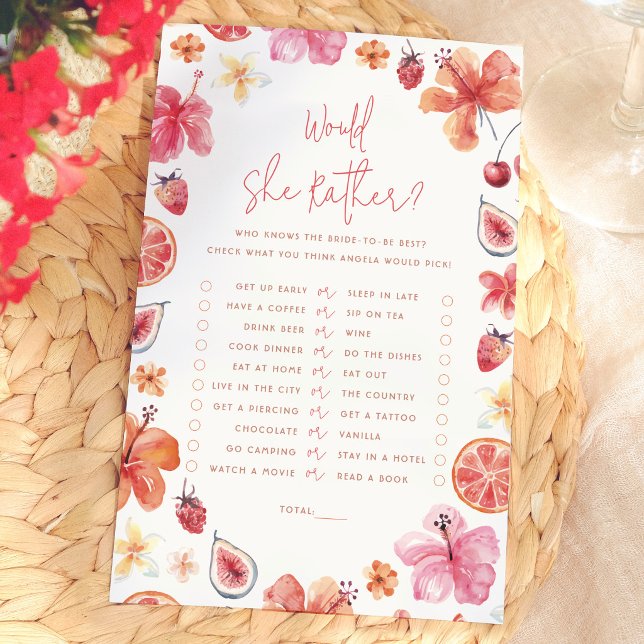 Would
She Rather?
WHO KNOWS THE BRIDE-TO-BE BEST?
CHECK WHAT YOU THINK ANGELA WOULD PICK!
GET UP EARLY or SLEEP IN LATE
HAVE A COFFEE or SIP ON TEA
DRINK BEER or WINE
COOK DINNER or DO THE DISHES
EAT AT HOME or EAT OUT
LIVE IN THE CITY or THE COUNTRY
GET A PIERCING or GET A TATTOO
CHOCOLATE or VANILLA
GO CAMPING or STAY IN A HOTEL
WATCH A MOVIE or READ A BOOK
TOTAL:____